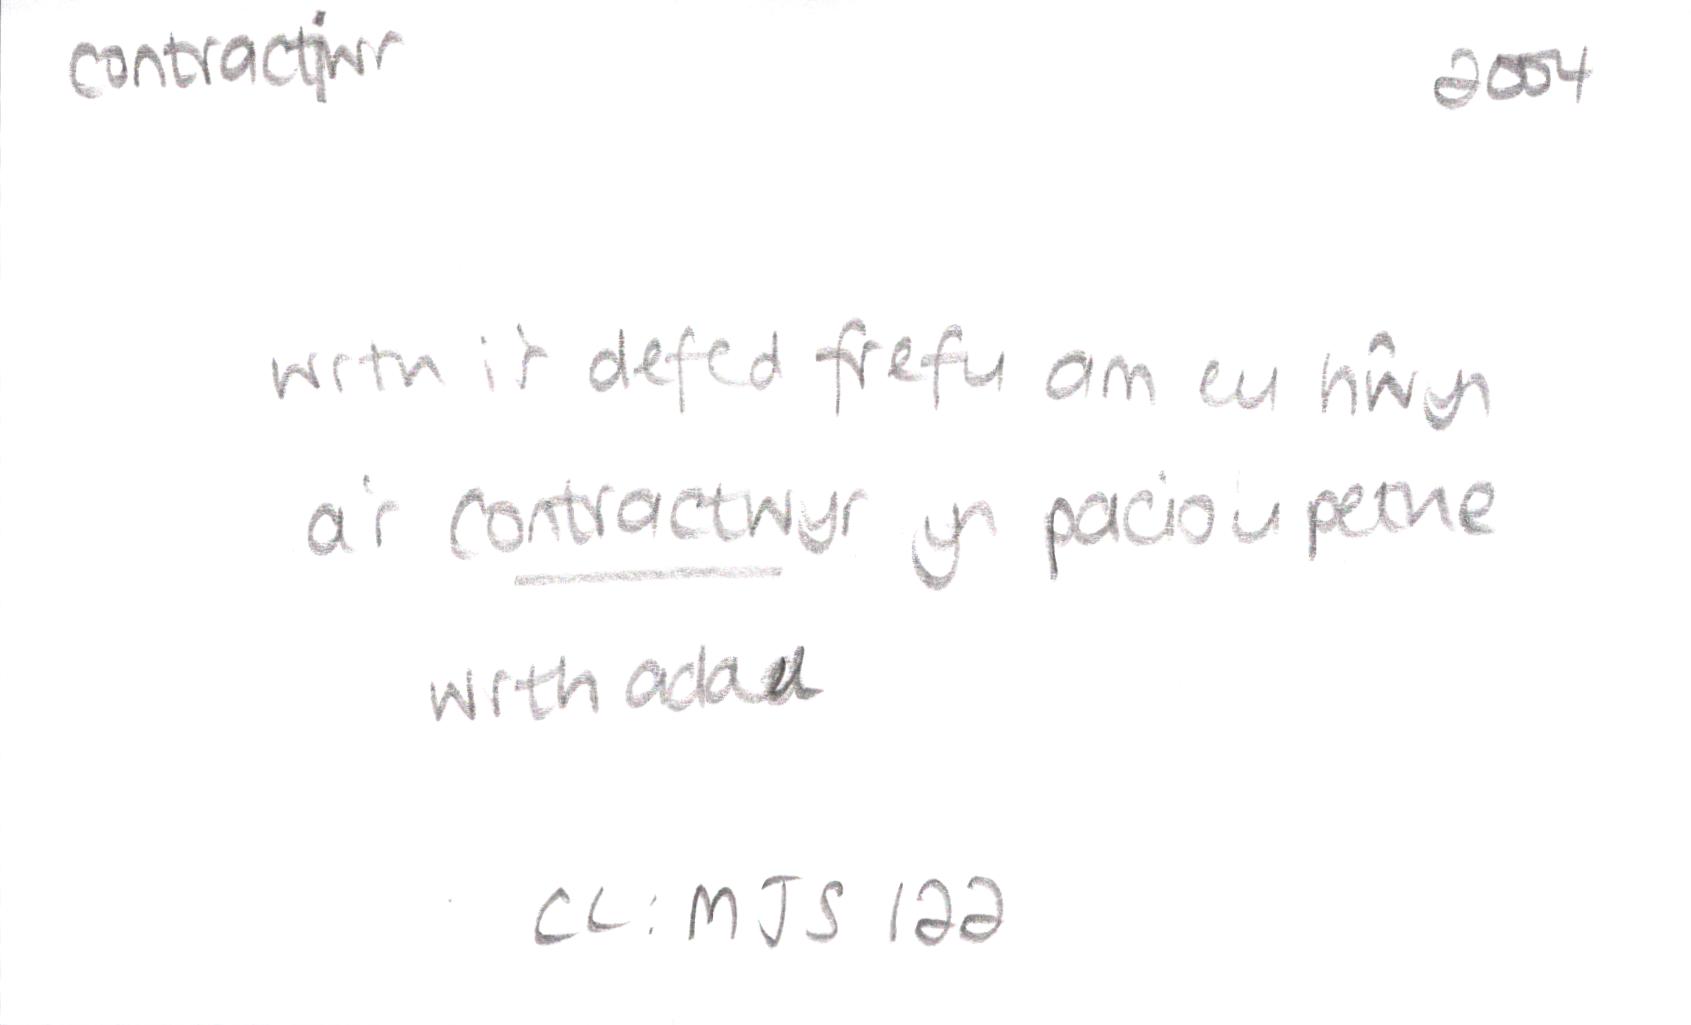 contractiwr 2004
wrth i'r defed frefu am eu hŵyn
a'r contractwyr yn pacio'u pethe
wrth adael
CC: MJS 122